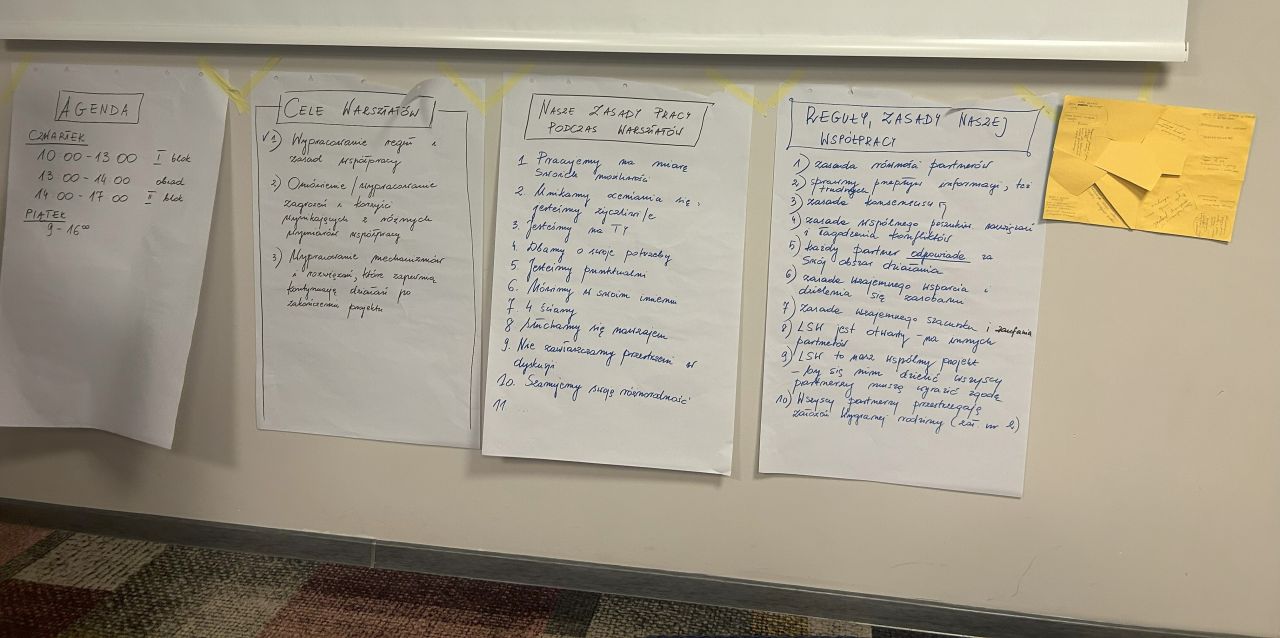 AGENDA
CZWARTEK
10 00 - 13 00 I blok
13 00 - 14 00 obiad
14 00 - 17 00 II blok
PIĄTEK
9 - 16⁰⁰
CELE WARSZTATÓW
√ 1) Wypracowanie reguł i
zasad współpracy
2) Omówienie / wypracowanie
zagrożeń i korzyści
wynikających z różnych
wymiarów współpracy
3) Wypracowanie mechanizmów
i rozwiązań, które zapewnią
kontynuację działań po
zakończeniu projektu
NASZE ZASADY PRACY
PODCZAS WARSZTATÓW
1. Pracujemy na miarę
swoich możliwości
2. Unikamy oceniania się,
jesteśmy życzliwi/e
3. Jesteśmy na TY
4. Dbamy o swoje potrzeby
5. Jesteśmy punktualni
6. Mówimy w swoim imieniu
7. 4 ściany
8. Słuchamy się nawzajem
9. Nie zawłaszczamy przestrzeni w
dyskusji
10. Szanujemy swoją różnorodność
11
REGUŁY, ZASADY NASZEJ
WSPÓŁPRACY
1) zasada równości partnerów
2) sprawny przepływ informacji, też
trudnych
3) zasada konsensusu
4) zasada wspólnego poszukiw. rozwiązań
i łagodzenia konfliktów
5) każdy partner odpowiada za
swój obszar działania
6) zasada wzajemnego wsparcia i
dzielenia się zasobami
7) zasada wzajemnego szacunku i zaufania
8) LSW jest otwarty - na innych
partnerów
9) LSW to nasz wspólny projekt
- by się nim dzielić wszyscy
partnerzy muszą wyrazić zgodę
10) Wszyscy partnerzy przestrzegają
założeń Wygranej rodziny (zał. nr 2)